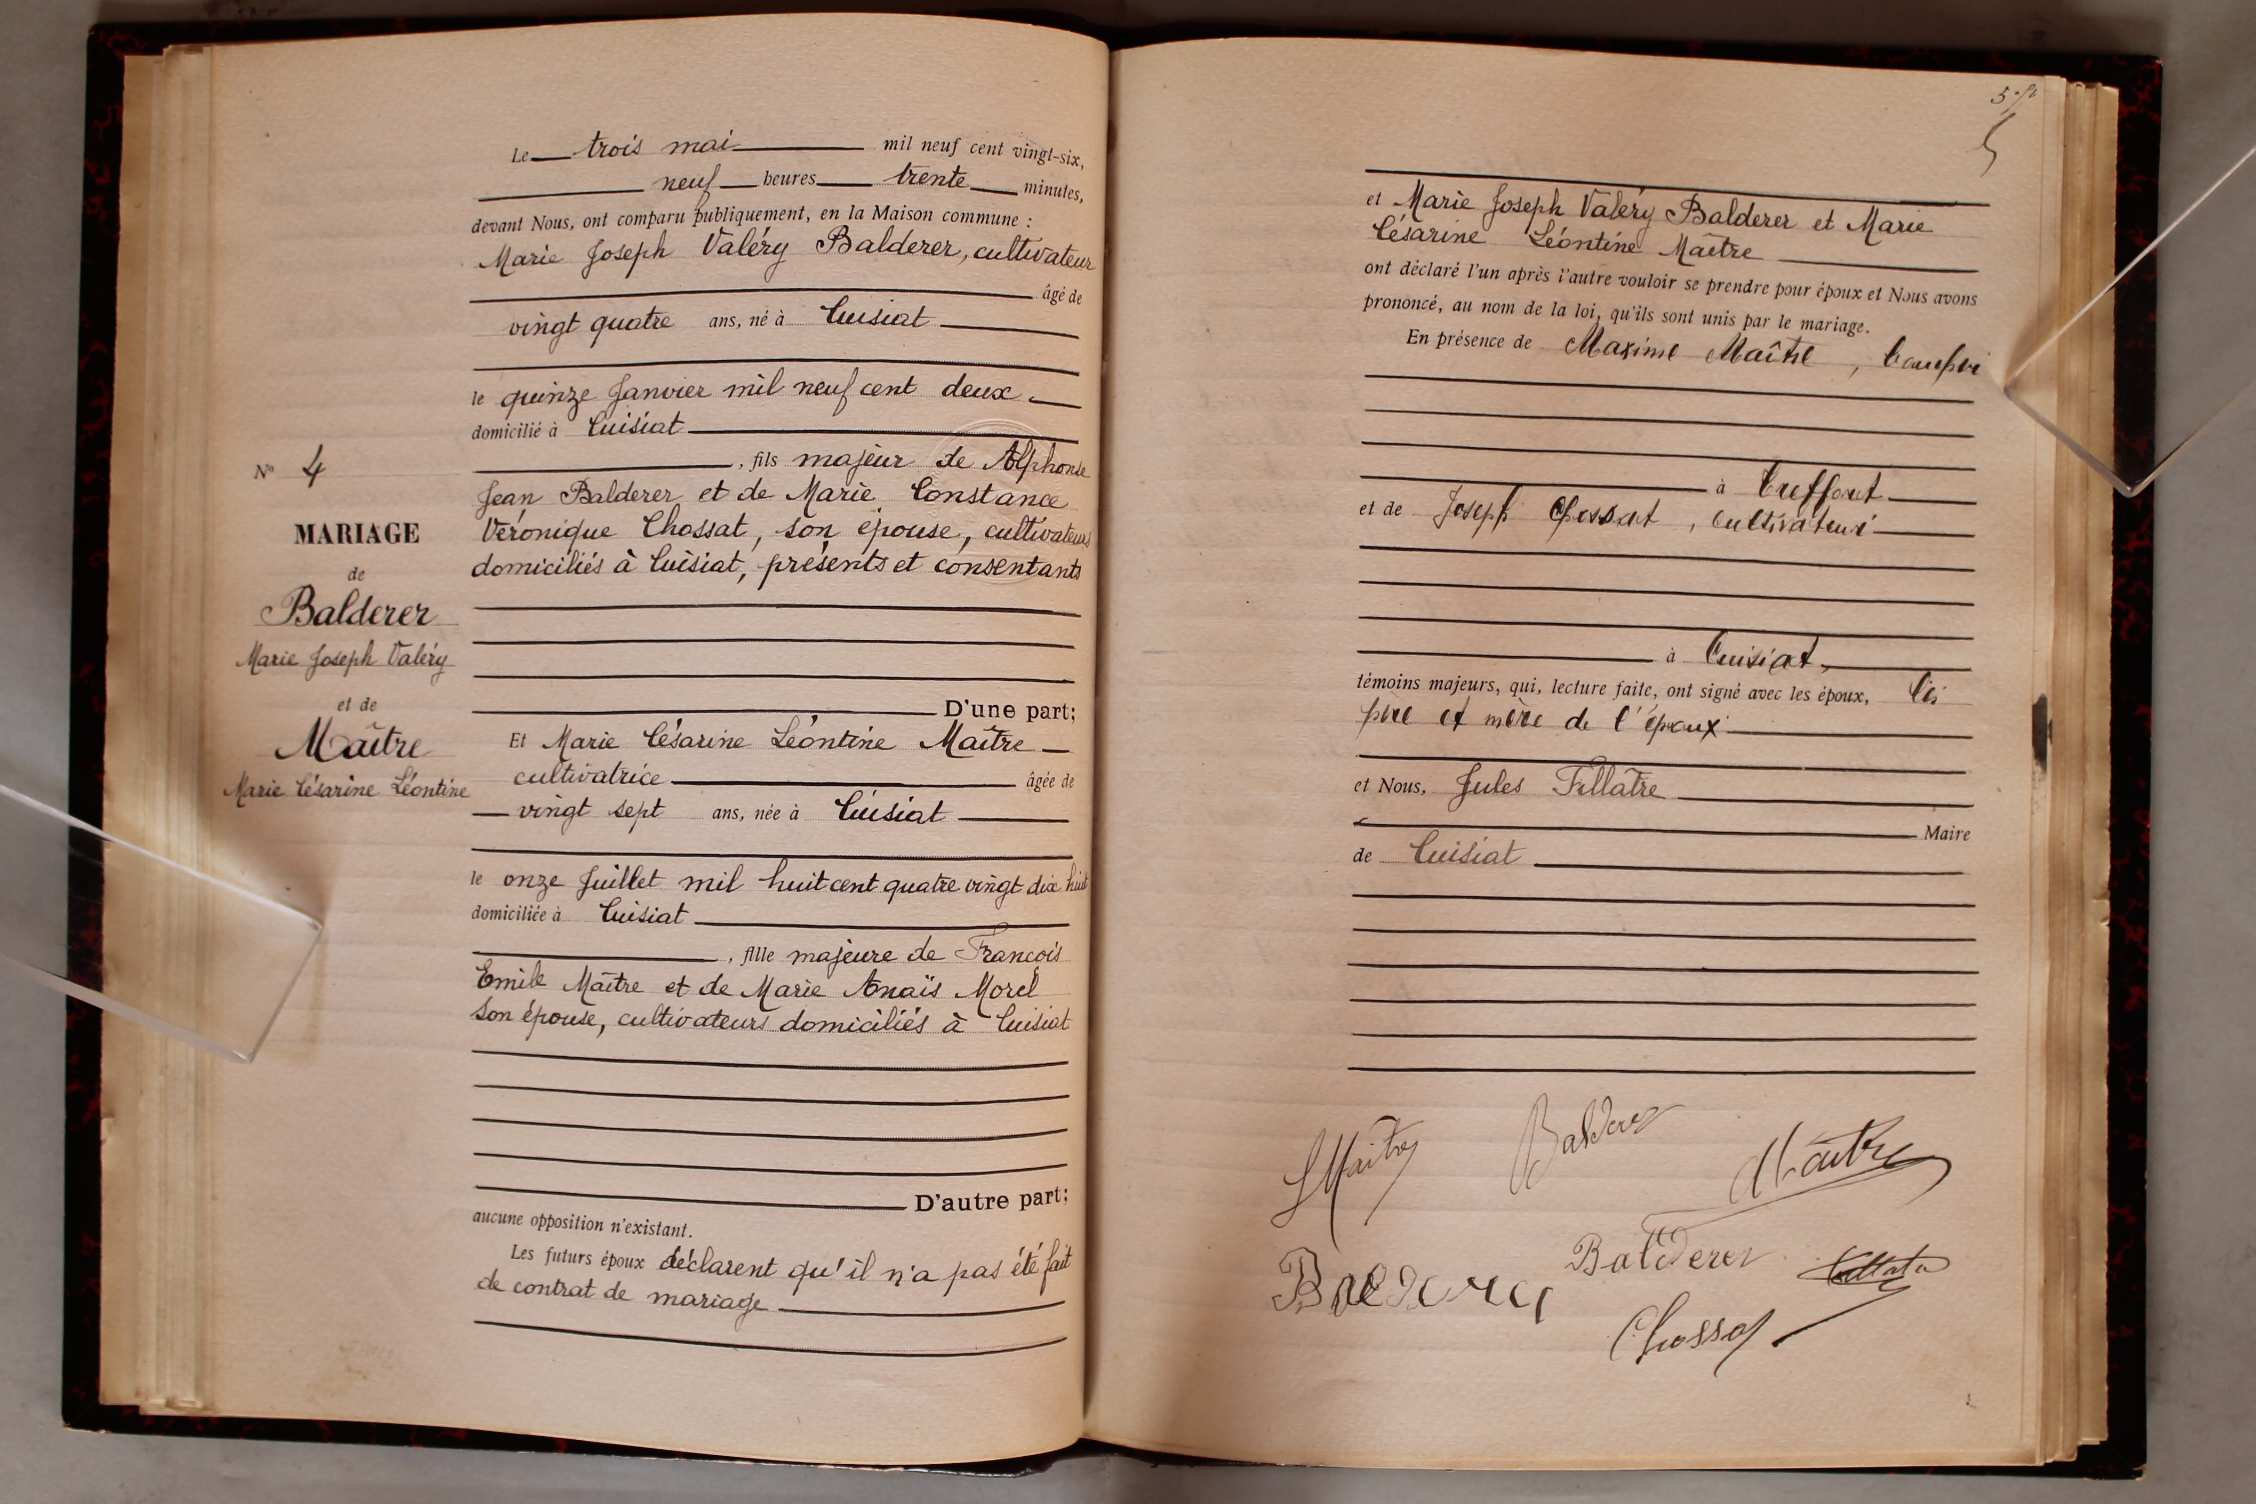 N° 4
MARIAGE
de
Balderer
Marie Joseph Valéry
et de
Maître
Marie Césarine Léontine
Le trois mai mil neuf cent vingt-six,
neuf heures trente minutes,
devant Nous, ont comparu publiquement, en la Maison commune :
Marie Joseph Valéry Balderer, cultivateur
âgé de
vingt quatre ans, né à Cuisiat
le quinze Janvier mil neuf cent deux
domicilié à Cuisiat
, fils majeur de Alphonse
Jean Balderer et de Marie Constance
Véronique Chossat, son épouse, cultivateurs
domiciliés à Cuisiat, présents et consentants
D'une part;
Et Marie Césarine Léontine Maître
cultivatrice âgée de
vingt sept ans, née à Cuisiat
le onze Juillet mil huit cent quatre vingt dix huit
domiciliée à Cuisiat
, fille majeure de François
Emile Maître et de Marie Anaïs Morel
son épouse, cultivateurs domiciliés à Cuisiat
D'autre part;
aucune opposition n'existant.
Les futurs époux déclarent qu'il n'a pas été fait
de contrat de mariage
5
et Marie Joseph Valéry Balderer et Marie
Césarine Léontine Maître
ont déclaré l'un après l'autre vouloir se prendre pour époux et Nous avons
prononcé, au nom de la loi, qu'ils sont unis par le mariage.
En présence de Maxime Maître,
à Treffort
et de Joseph Chossat, cultivateur
à Cuisiat,
témoins majeurs, qui, lecture faite, ont signé avec les époux, les
père et mère de l'époux
et Nous, Jules Fillatre
Maire
de Cuisiat
Maitre Balderer Maitre
Balderer Balderer
Chossat